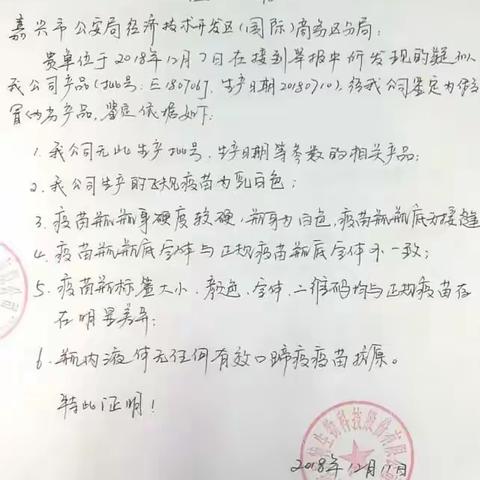 嘉兴市公安局经济技术开发区(国际)商务区分局:
贵单位于2018年12月7日在接到举报中所发现的疑似
我公司产品(批号:E180706J,生产日期20180710),经我公司鉴定为伪
冒 产品,鉴定依据如下:
1.我公司无此生产批号、生产日期等参数的相关产品;
2.我公司生产的正规疫苗为乳白色;
3.疫苗瓶瓶身硬度较硬,瓶身为白色,疫苗瓶瓶底为揉缝
4.疫苗瓶瓶底字体与正规疫苗瓶底字体不一致;
5.疫苗瓶标签大小、颜色、字体、二维码均与正规疫苗存
在明显差异;
6.瓶内液体无任何有效口蹄疫疫苗抗原。
特此证明!
生物科技股份有限公司
2018年12月11日